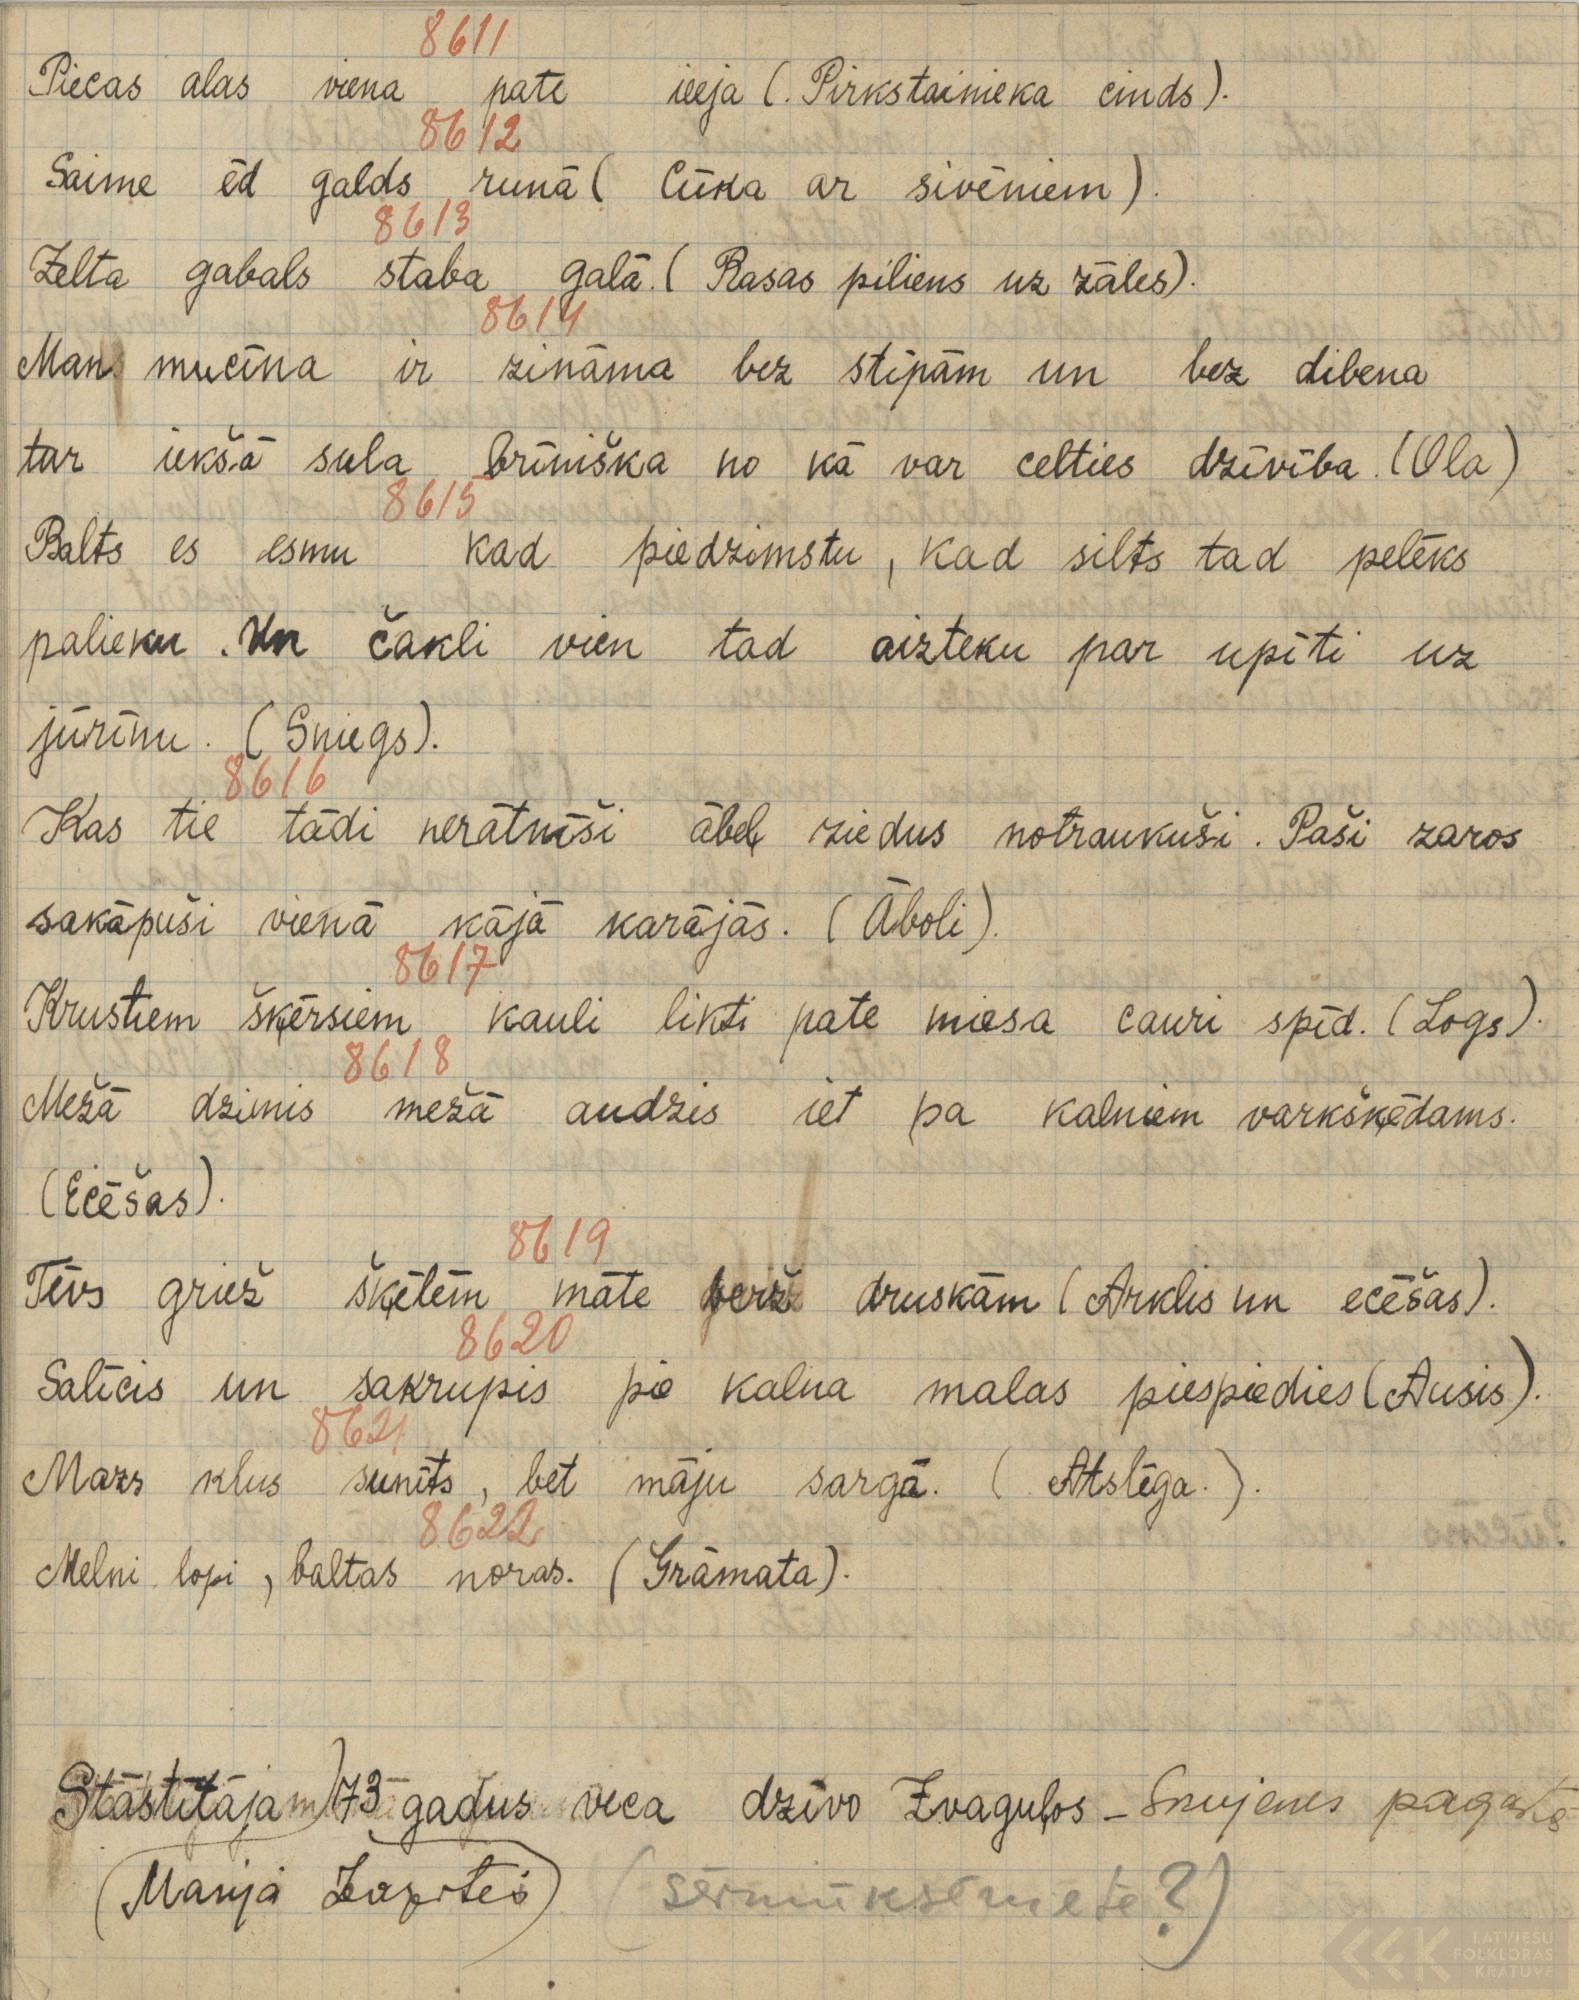 8611
Piecas alas viena pate ieeja (. Pirkstainieka cinds).
8612
Saime ēd galds runā ( Cūka ar sivēniem ).
8613
Zelta gabals staba galā. ( Rasas piliens uz zāles).
8614
Man mucīna ir zināma bez stīpām un bez dibena
tur iekšā sula brīniška no kā var celties dzīvība. (Ola)
8615
Balts es esmu kad piedzimstu, kad silts tad pelēks
palieku. Un čakli vien tad aizteku par upīti uz
jūrīnu. (Sniegs).
8616
Kas tie tādi nerātnīši ābeļ ziedus notraukuši. Paši zaros
sakāpuši vienā kājā karājās. (Āboli).
8617
Krustiem šķērsiem kauli likti pate miesa cauri spīd. (Logs).
8618
Mežā dzimis mežā audzis iet pa kalniem varkšķēdams.
(Ecēšas).
8619
Tēvs griež šķēlēm māte berž druskām (Arklis un ecēšas).
8620
Salīcis un sakrupis pie kalna malas piespiedies (Ausis).
8621
Mazs klus sunīts, bet māju sargā. ( Atslēga. ).
8622
Melni lopi, baltas noras. (Grāmata).
Stāstītāja 73 gadus veca dzīvo Zvaguļos – pagastā
(Marija
LATVIEŠU
FOLKLORAS
KRĀTUVE